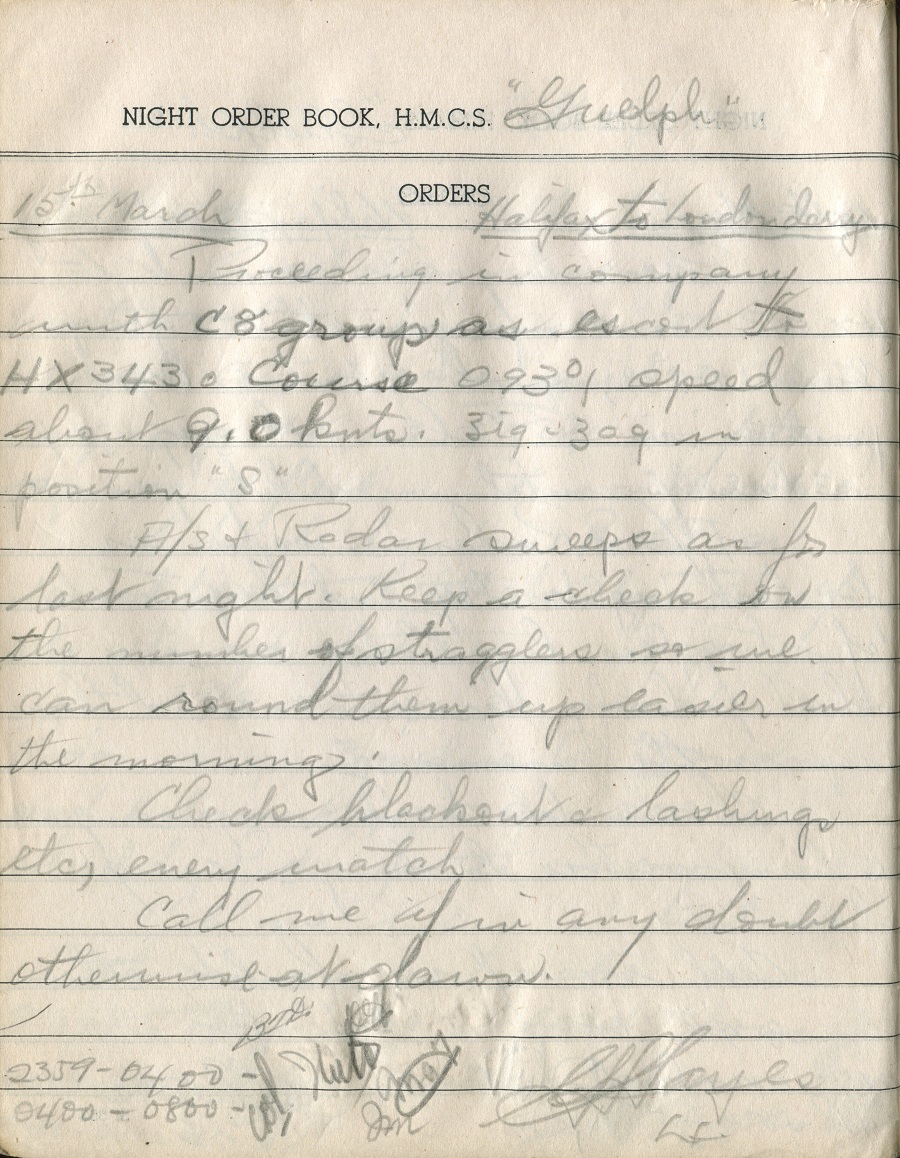 NIGHT ORDER BOOK, H.M.C.S. "Guelph"
ORDERS
15th March Halifax to Londonderry
Proceeding in company
with C8 group as escort to
HX343. Course 093°, speed
about 9.0 knts. Zig-zag in
position "S"
A/S & Radar sweeps as for
last night. Keep a check on
the number of stragglers so we
can round them up easier in
the morning.
Check blackout & lashings
etc, every watch.
Call me if in any doubt
otherwise at dawn.
2359-0400 -
0400 - 0800 -
Hayes
Lt.